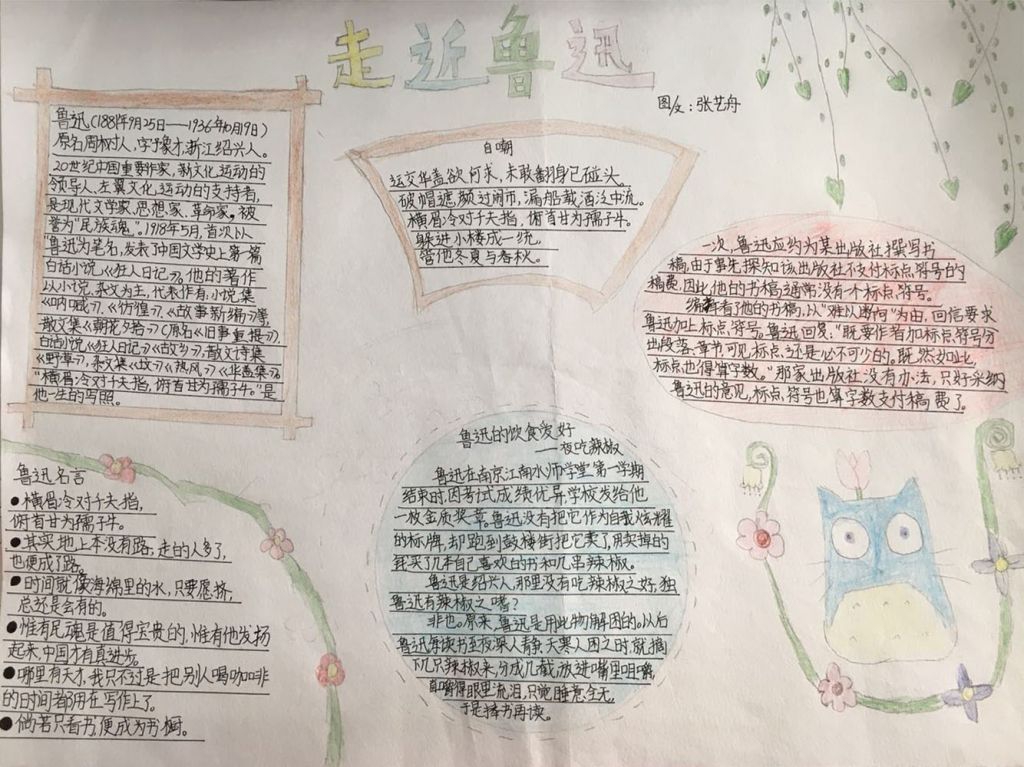 走近鲁迅
图文：张艺舟
鲁迅(1881年9月25日——1936年10月19日)
原名周树人，字豫才，浙江绍兴人。
20世纪中国重要作家，新文化运动的
领导人、左翼文化运动的支持者，
是现代文学家、思想家、革命家。被
誉为"民族魂"。1918年5月，首次以
"鲁迅"为笔名，发表了中国文学史上第一篇
白话小说《狂人日记》。他的著作
以小说、杂文为主，代表作有：小说集
《呐喊》、《彷徨》、《故事新编》等，
散文集《朝花夕拾》(原名《旧事重提》)，
白话小说《狂人日记》《故乡》，散文诗集
《野草》，杂文集《坟》《热风》《华盖集》。
"横眉冷对千夫指，俯首甘为孺子牛。"是
他一生的写照。
自嘲
运交华盖欲何求，未敢翻身已碰头。
破帽遮颜过闹市，漏船载酒泛中流。
横眉冷对千夫指，俯首甘为孺子牛。
躲进小楼成一统，
管他冬夏与春秋。
一次，鲁迅应约为某出版社撰写书
稿，由于事先探知该出版社不支付标点符号的
稿费，因此他的书稿通常没有一个标点符号。
编辑看了他的书稿，以"难以断句"为由，回信要求
鲁迅加上标点符号。鲁迅回复："既要作者加标点符号分
出段落、章节，可见标点还是必不可少的。既然如此，
标点也得算字数。"那家出版社没有办法，只好采纳
鲁迅的意见，标点符号也算字数支付稿费了。
鲁迅名言
●横眉冷对千夫指，
俯首甘为孺子牛。
●其实地上本没有路，走的人多了，
也便成了路。
●时间就像海绵里的水，只要愿挤，
总还是会有的。
●惟有民魂是值得宝贵的，惟有他发扬
起来，中国才有真进步。
●哪里有天才，我只不过是把别人喝咖啡
的时间都用在写作上了。
●倘若只看书，便成为书橱。
鲁迅的饮食爱好
——夜吃辣椒
鲁迅在南京江南水师学堂第一学期
结束时，因考试成绩优异学校发给他
一枚金质奖章。鲁迅没有把它作为自我炫耀
的标牌，却跑到鼓楼街把它卖了，用卖掉的
钱买了几本自己喜欢的书和几串辣椒。
鲁迅是绍兴人，那里没有吃辣椒之好，独
鲁迅有辣椒之嗜？
非也。原来，鲁迅是用此物解困的。从后
鲁迅每读书至夜深人静、天寒人困之时，就摘
下几只辣椒来，分成几截，放进嘴里咀嚼，
直嚼得眼里流泪，只觉睡意全无，
于是捧书再读。